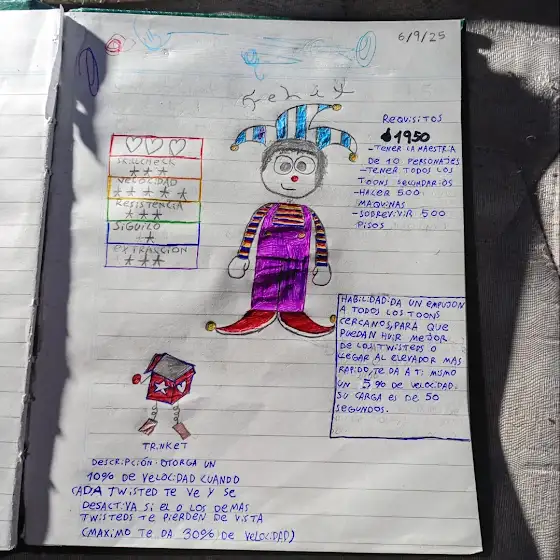 6/9/25
Felix
REQUISITOS
1950
-TENER LA MAESTRIA
DE 10 PERSONAJES
-TENER TODOS LOS
TOONS SECUNDARIOS
-HACER 500
MAQUINAS
-SOBREVIVIR 500
PISOS
SKILLCHECK
VELOCIDAD
RESISTENCIA
SIGUILO
EXTRACCION
HABILIDAD: DA UN EMPUJON
A TODOS LOS TOONS
CERCANOS, PARA QUE
PUEDAN HUIR MEJOR
DE LOS TWISTEDS O
LLEGAR AL ELEVADOR MAS
RAPIDO, TE DA A TI MISMO
UN 5% DE VELOCIDAD.
SU CARGA ES DE 50
SEGUNDOS.
TRINKET
DESCRIPCIÓN: OTORGA UN
10% DE VELOCIDAD CUANDO
CADA TWISTED TE VE Y SE
DESACTIVA SI EL O LOS DEMAS
TWISTEDS TE PIERDEN DE VISTA
(MAXIMO TE DA 30% DE VELOCIDAD)